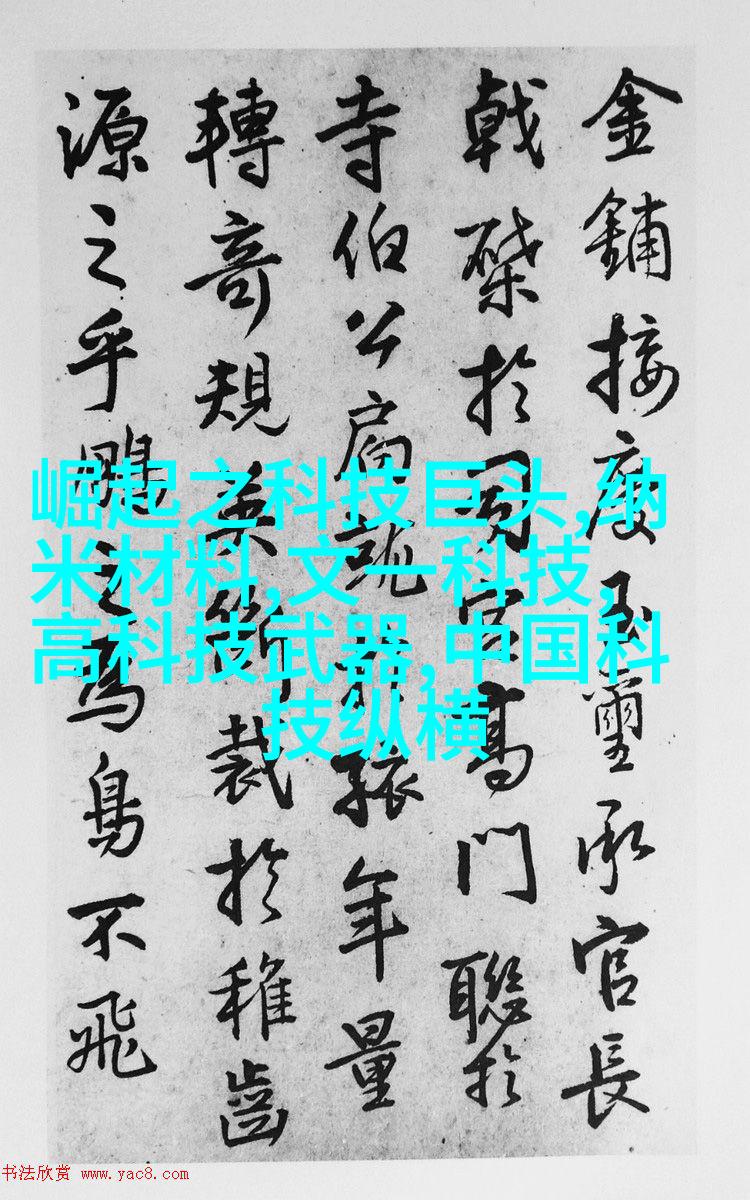 金鋪接慶玉璽承官長
戟棨於宮高門聯於
寺伯公年量
轉奇規裁於稚齒
源之乎鵬之為鳥不飛
崛起之科技巨头,纳
米材料,文一科技,
高科技武器,中国科
技纵横
书法欣赏 www.yac8.com